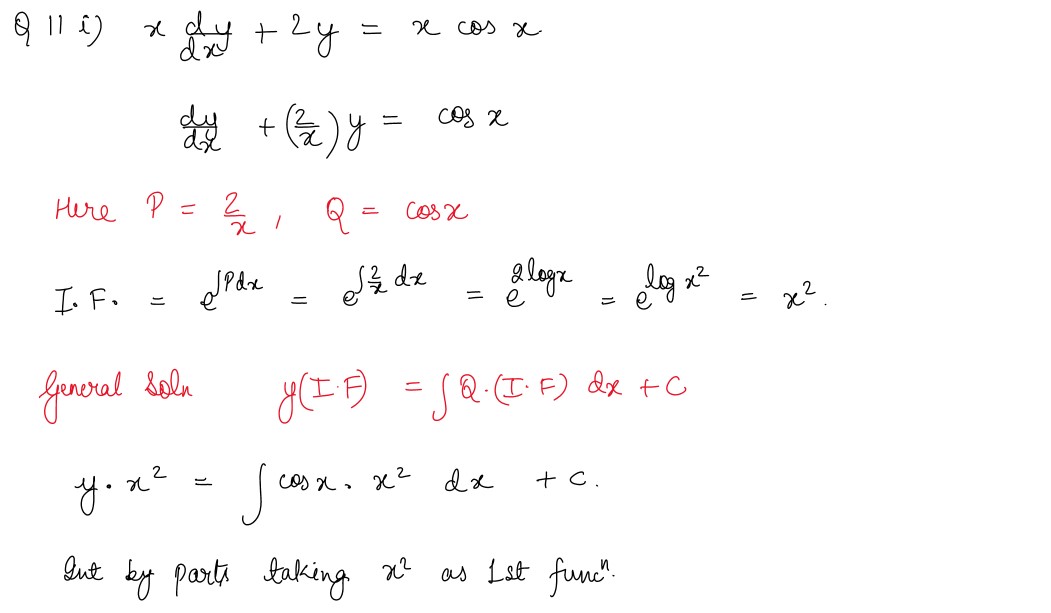 Q 11 i) x dy/dx + 2y = x cos x.
dy/dx + (2/x) y = cos x
Here P = 2/x, Q = cosx
I.F. = e^∫Pdx = e^∫2/x dx = e^2logx = e^log x² = x².
General Soln y(I.F) = ∫Q.(I.F) dx + C
y. x² = ∫ cosx. x² dx + C.
Int by parts taking x² as 1st funcⁿ.